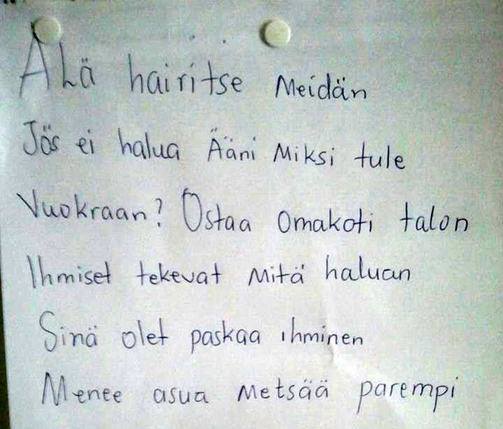 Älä hairitse meidän
Jös ei halua Ääni Miksi tule
Vuokraan? Ostaa omakoti talon
Ihmiset tekevat Mitä haluan
Sinä olet paskaa ihminen
Menee asua Metsää parempi